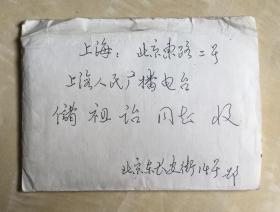 上海：北京东路二号
上海人民广播电台
储祖诒同志收
北京东长安街14号邵